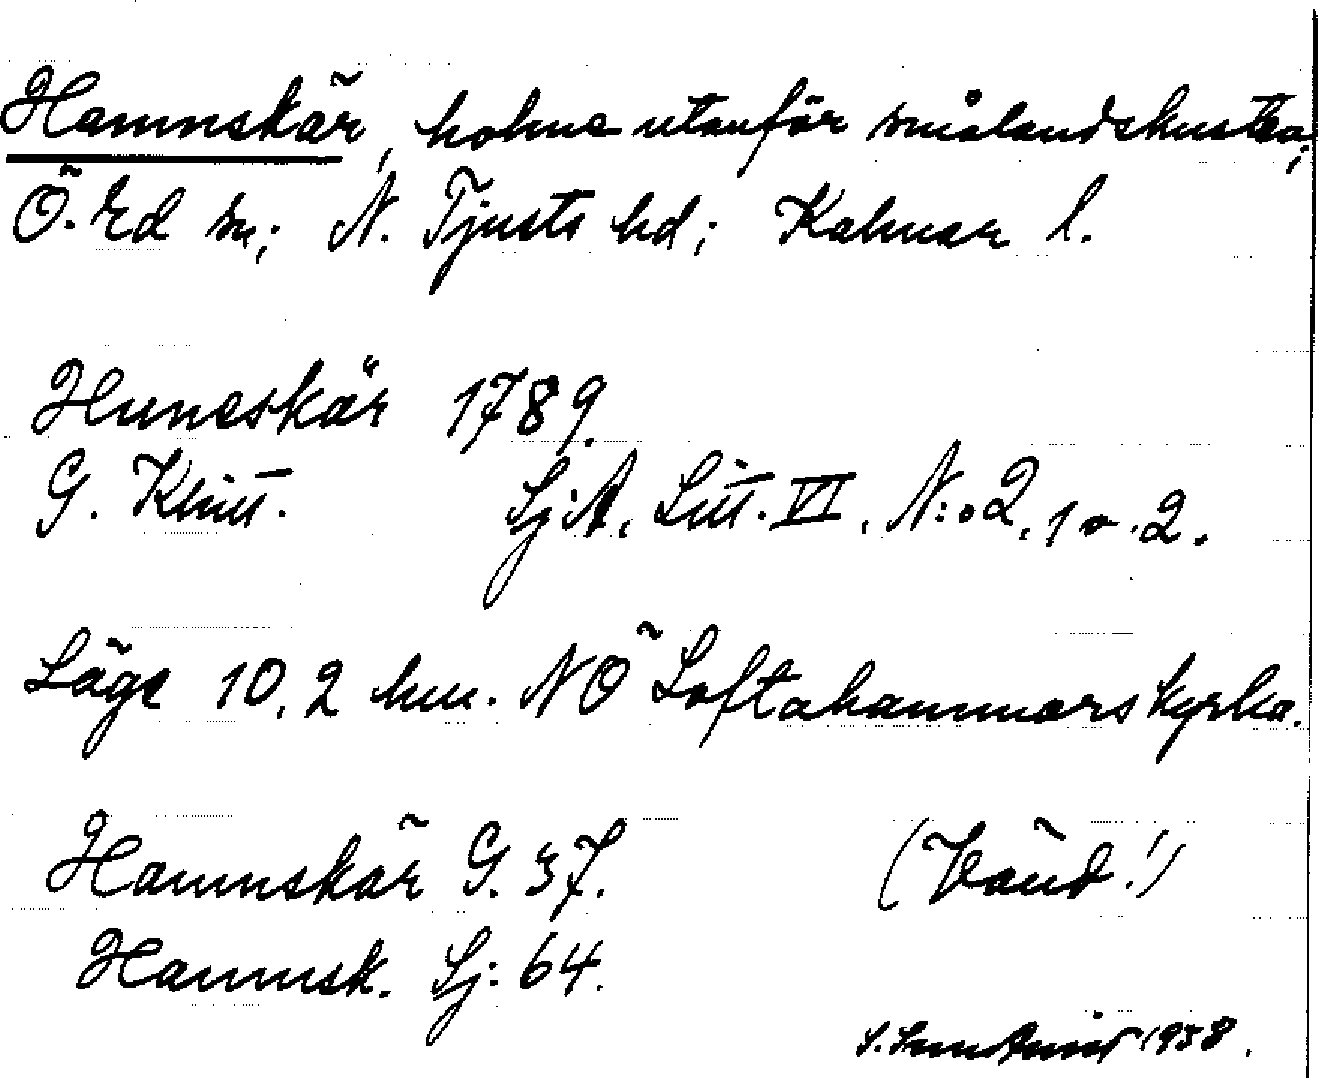 Hamnskär, holme utanför smålandskusten;
Ö. Ed sn; N. Tjusts hd; Kalmar l.
Huneskär 1789.
G. Klint. Sj:A, Litt. VI, N:o 2, 1 o. 2.
Läge 10,2 km. NÖ Loftahammars kyrka.
Hamnskär G. 37. (Vänd!)
Hamnsk. Sj: 64.
1938.